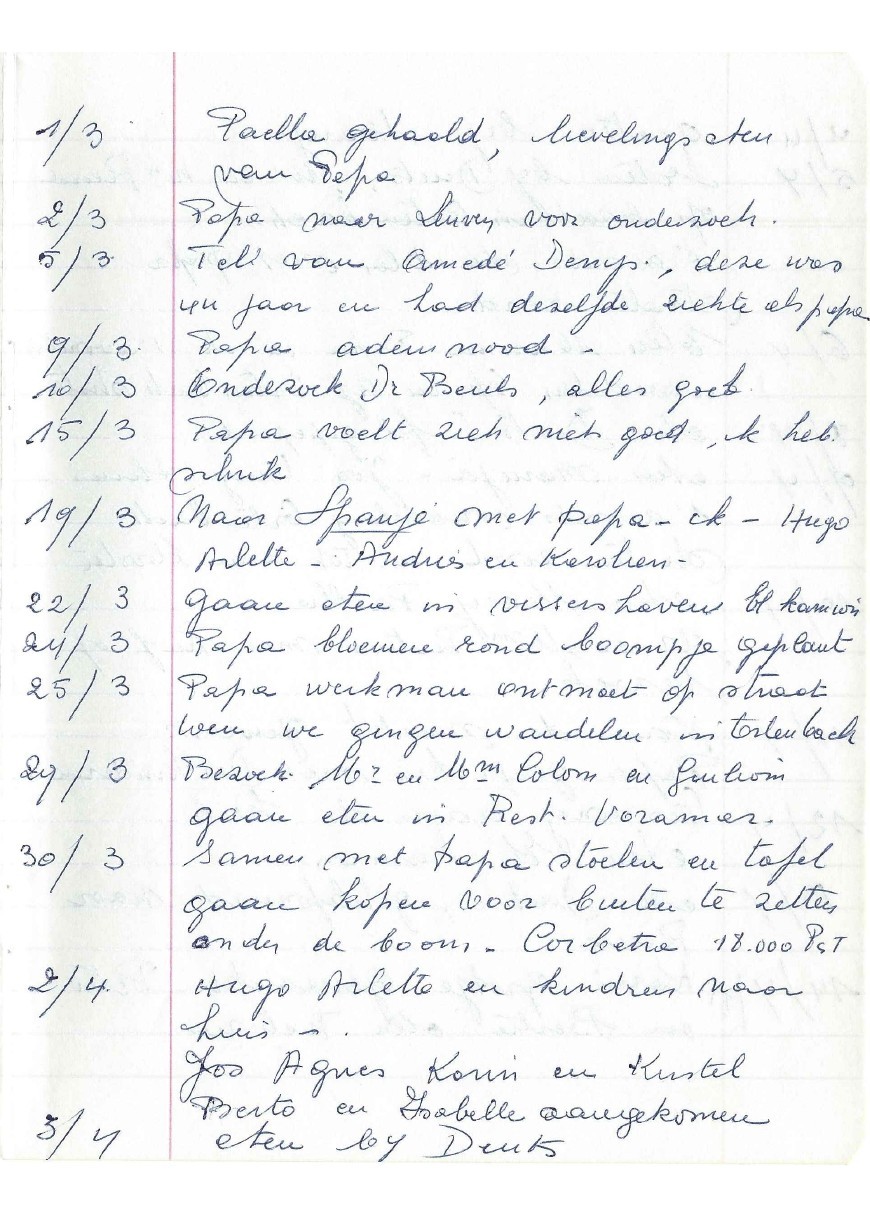 1/3 Paella gehaald, lievelings eten
van Papa
2/3 Papa naar Leuven voor onderzoek.
5/3 Tel. van Amedé Denys, deze was
44 jaar en had dezelfde ziekte als papa
9/3 Papa ademnood -
10/3 Ondezoek Dr Beuls, alles goed.
15/3 Papa voelt zich niet goed, ik heb
schrik
19/3 Naar Spanje met papa - ik - Hugo
Arlette - Andries en Karolien -
22/3 gaan eten in vissershaven El
24/3 Papa bloemen rond boompje geplant
25/3 Papa werkman ontmoet op straat
toen we gingen wandelen in
27/3 Bezoek Mr en Mm Colom en
gaan eten in Rest. Voramar.
30/3 Samen met papa stoelen en tafel
gaan kopen voor buiten te zetten
onder de boom - 18.000 PsT
2/4 Hugo Arlette en kindren naar
huis - .
Jos Agnes Karin en Kristel
Berto en Isabelle aangekomen
3/4 eten by